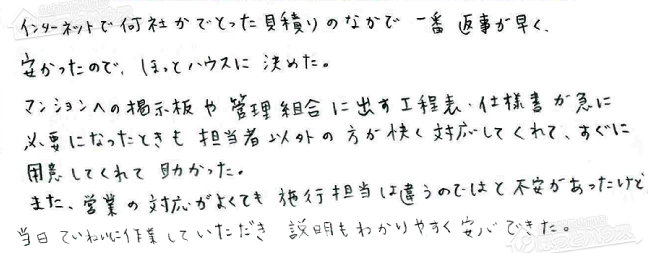 インターネットで何社かでとった見積りのなかで一番返事が早く、
安かったので、ほっとハウスに決めた。
マンションへの掲示板や管理組合に出す工程表・仕様書が急に
必要になったときも担当者以外の方が快く対応してくれて、すぐに
用意してくれて助かった。
また、営業の対応がよくても施行担当は違うのではと不安があったけど
当日ていねいに作業していただき説明もわかりやすく安心できた。